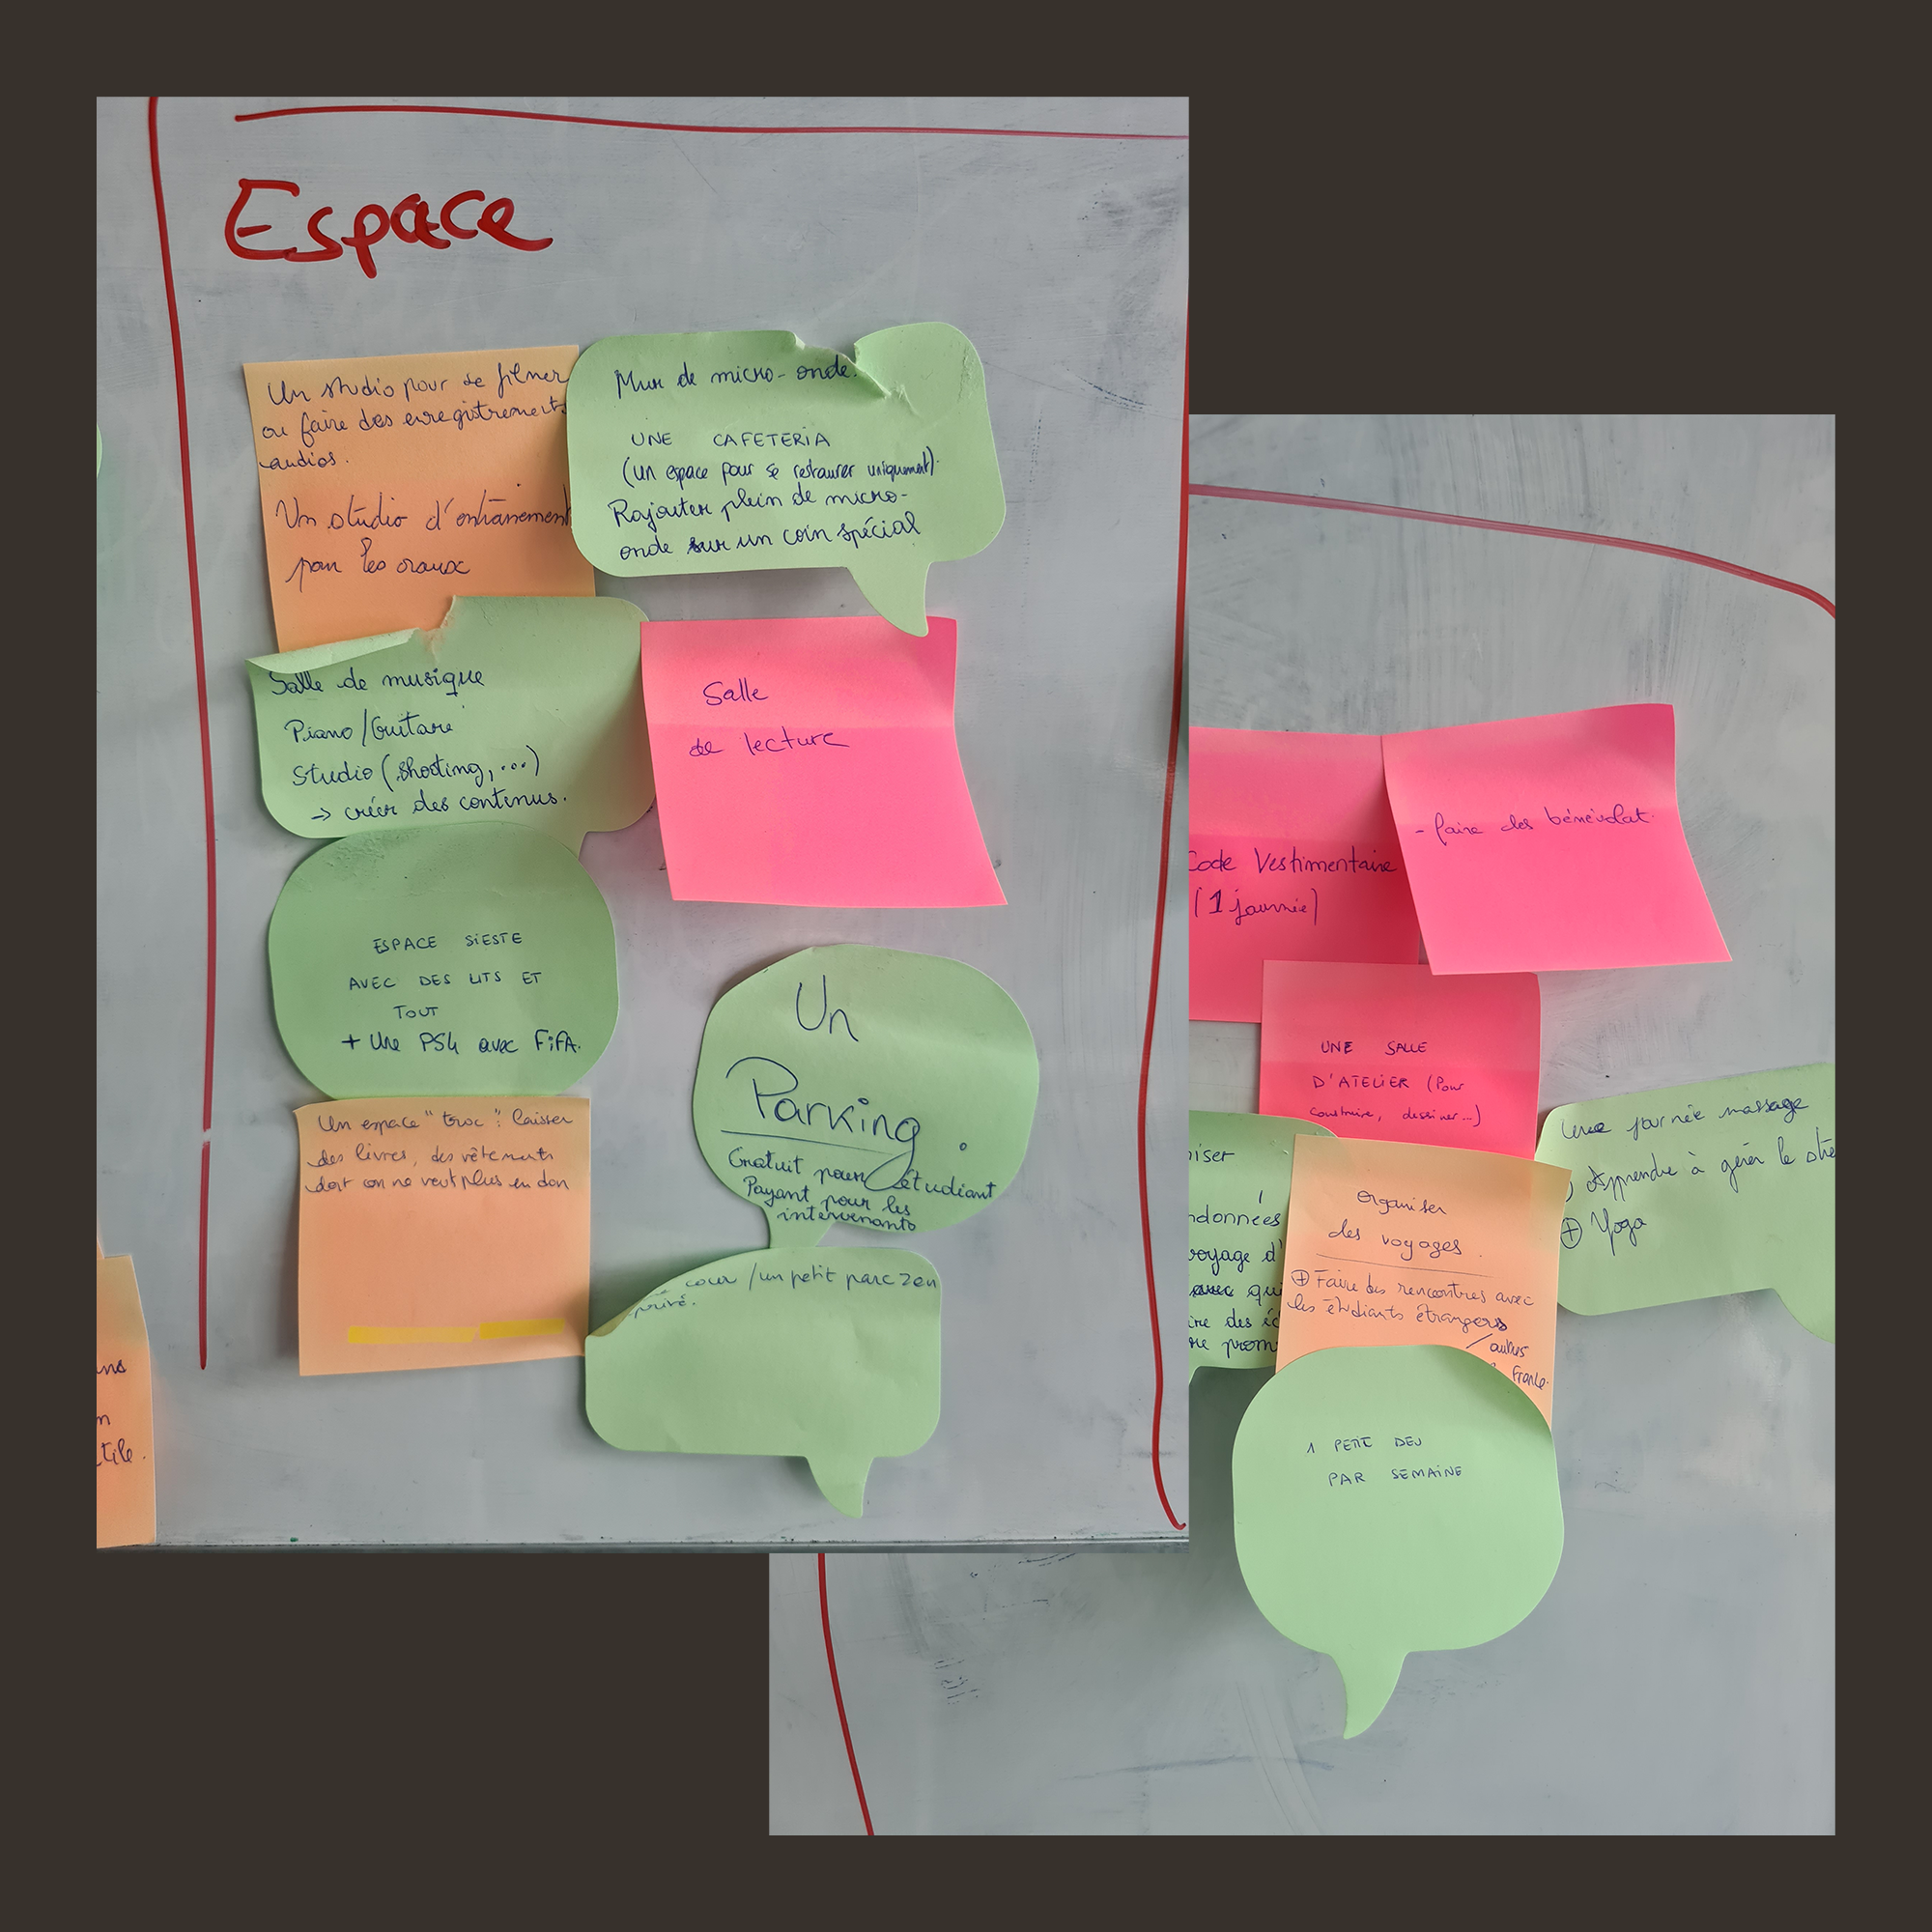 Espace
Un studio pour se filmer
ou faire des enregistrements
audios.
Un studio d'entraînement
pour les oraux
Mur de micro-onde.
UNE CAFETERIA
(un espace pour se restaurer uniquement).
Rajouter plein de micro-
onde sur un coin spécial
Salle de musique
Piano/Guitare
Studio (shooting, ...)
→ créer des contenus.
Salle
de lecture
ESPACE SIESTE
AVEC DES LITS ET
TOUT
+ Une PS4 avec FIFA.
Un
Parking.
Gratuit pour étudiant
Payant pour les
intervenants
Un espace "troc": laisser
des livres, des vêtements
dont on ne veut plus en don
cour / un petit parc zen
privé.
tile.
Code Vestimentaire
(1 journée)
- faire des bénévolat.
UNE SALLE
D'ATELIER (Pour
construire, dessiner...)
iser
ndonnées
voyage d'
avec qui
ire des éc
re prom
Organiser
des voyages.
+ Faire des rencontres avec
les étudiants étrangers
/ autres
France.
Une journée massage
Apprendre à gérer le stre
+ Yoga
1 PETIT DEJ
PAR SEMAINE